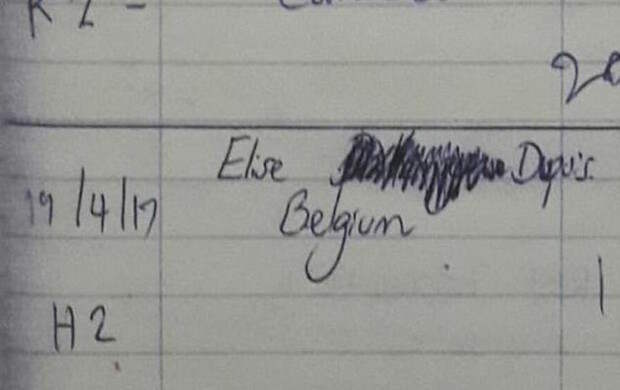 K 2 -
Elise Dupuis.
19/4/17 Belgium
1
H 2